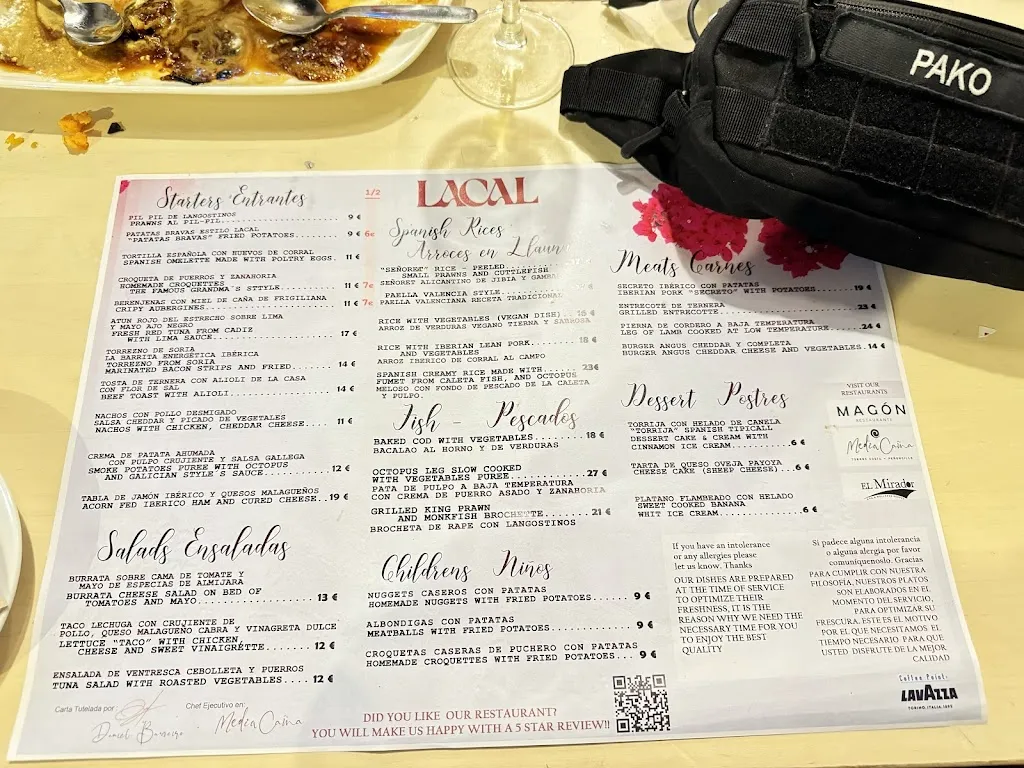 PAKO
LACAL
Starters Entrantes
1/2
PIL PIL DE LANGOSTINOS
PRAWNS AL PIL-PIL 9 €
PATATAS BRAVAS ESTILO LACAL
"PATATAS BRAVAS" FRIED POTATOES 9 € 6€
TORTILLA ESPAÑOLA CON HUEVOS DE CORRAL
SPANISH OMELETTE MADE WITH POLTRY EGGS. 11 €
CROQUETA DE PUERROS Y ZANAHORIA
HOMEMADE CROQUETTES
THE FAMOUS GRANDMA'S STTYLE 11 € 7€
BERENJENAS CON MIEL DE CAÑA DE FRIGILIANA
CRIPY AUBERGINES 11 € 7€
ATUN ROJO DEL ESTRECHO SOBRE LIMA
Y MAYO AJO NEGRO
FRESH RED TUNA FROM CADIZ
WITH LIMA SAUCE 17 €
TORREZNO DE SORIA
LA BARRITA ENERGÉTICA IBÉRICA
TORREZNO FROM SORIA
MARINATED BACON STRIPS AND FRIED 14 €
TOSTA DE TERNERA CON ALIOLI DE LA CASA
CON FLOR DE SAL
BEEF TOAST WITH ALIOLI 14 €
NACHOS CON POLLO DESMIGADO
SALSA CHEDDAR Y PICADO DE VEGETALES
NACHOS WITH CHICKEN, CHEDDAR CHEESE 11 €
CREMA DE PATATA AHUMADA
CON PULPO CRUJIENTE Y SALSA GALLEGA
SMOKE POTATOES PUREE WITH OCTOPUS
AND GALICIAN STYLE´S SAUCE 12 €
TABLA DE JAMÓN IBÉRICO Y QUESOS MALAGUEÑOS
ACORN FED IBERICO HAM AND CURED CHEESE..19 €
Salads Ensaladas
BURRATA SOBRE CAMA DE TOMATE Y
MAYO DE ESPECIAS DE ALMIJARA
BURRATA CHEESE SALAD ON BED OF
TOMATOES AND MAYO 13 €
TACO LECHUGA CON CRUJIENTE DE
POLLO, QUESO MALAGUEÑO CABRA Y VINAGRETA DULCE
LETTUCE "TACO" WITH CHICKEN,
CHEESE AND SWEET VINAIGRETTE 12 €
ENSALADA DE VENTRESCA CEBOLLETA Y PUERROS
TUNA SALAD WITH ROASTED VEGETABLES.... 12 €
Carta Tutelada por:
Chef Ejecutivo en:
Media Caina
Spanish Rices
Arroces en Llauna
"SEÑORET" RICE - PEELED
SMALL PRAWNS AND CUTTLEFISH
SEÑORET ALICANTINO DE JIBIA Y GAMBAS
PAELLA VALENCIA STYLE
PAELLA VALENCIANA RECETA TRADICIONAL
RICE WITH VEGETABLES (VEGAN DISH) 16 €
ARROZ DE VERDURAS VEGANO TIERNA Y SABROSA
RICE WITH IBERIAN LEAN PORK 18 €
AND VEGETABLES
ARROZ IBERICO DE CORRAL AL CAMPO
SPANISH CREAMY RICE MADE WITH 23€
FUMET FROM CALETA FISH, AND OCTOPUS
MELOSO CON FONDO DE PESCADO DE LA CALETA
Y PULPO.
Fish - Pescados
BAKED COD WITH VEGETABLES 18 €
BACALAO AL HORNO Y DE VERDURAS
OCTOPUS LEG SLOW COOKED
WITH VEGETABLES PUREE 27 €
PATA DE PULPO A BAJA TEMPERATURA
CON CREMA DE PUERRO ASADO Y ZANAHORIA
GRILLED KING PRAWN
AND MONKFISH BROCHETTE 21 €
BROCHETA DE RAPE CON LANGOSTINOS
Childrens Ninos
NUGGETS CASEROS CON PATATAS
HOMEMADE NUGGETS WITH FRIED POTATOES 9 €
ALBONDIGAS CON PATATAS
MEATBALLS WITH FRIED POTATOES 9 €
CROQUETAS CASERAS DE PUCHERO CON PATATAS
HOMEMADE CROQUETTES WITH FRIED POTATOES... 9 €
DID YOU LIKE OUR RESTAURANT?
YOU WILL MAKE US HAPPY WITH A 5 STAR REVIEW!!
Meats Carnes
SECRETO IBÉRICO CON PATATAS
IBERIAN PORK "SECRETO" WITH POTATOES 19 €
ENTRECOTE DE TERNERA
GRILLED ENTRECOTTE 23 €
PIERNA DE CORDERO A BAJA TEMPERATURA
LEG OF LAMB COOKED AT LOW TEMPERATURE 24 €
BURGER ANGUS CHEDDAR Y COMPLETA
BURGER ANGUS CHEDDAR CHEESE AND VEGETABLES. 14 €
Dessert Postres
TORRIJA CON HELADO DE CANELA
"TORRIJA" SPANISH TIPICALL
DESSERT CAKE & CREAM WITH
CINNAMON ICE CREAM 6 €
TARTA DE QUESO OVEJA PAYOYA
CHEESE CAKE (SHEEP CHEESE) 6 €
PLATANO FLAMBEADO CON HELADO
SWEET COOKED BANANA
WHIT ICE CREAM 6 €
VISIT OUR
RESTAURANTS
MAGÓN
RESTAURANTE
@
Media Caina
EL Mirador
If you have an intolerance
or any allergies please
let us know. Thanks
OUR DISHES ARE PREPARED
AT THE TIME OF SERVICE
TO OPTIMIZE THEIR
FRESHNESS, IT IS THE
REASON WHY WE NEED THE
NECESSARY TIME FOR YOU
TO ENJOY THE BEST
QUALITY
Si padece alguna intolerancia
o alguna alergia por favor
comuníquenoslo. Gracias
PARA CUMPLIR CON NUESTRA
FILOSOFÍA, NUESTROS PLATOS
SON ELABORADOS EN EL
MOMENTO DEL SERVICIO,
PARA OPTIMIZAR SU
FRESCURA. ESTE ES EL MOTIVO
POR EL QUE NECESITAMOS EL
TIEMPO NECESARIO PARA QUE
USTED DISFRUTE DE LA MEJOR
CALIDAD
Coffee Point:
LAVAZZA
TORINO, ITALIA, 1895